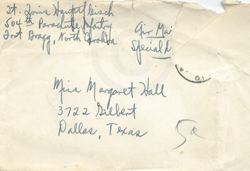 Lt. Louis Hauptfleisch
504th Parachute Infantry
Fort Bragg, North Carolina
Air Mai
Special
Miss Margaret Hall
3722 Gilbert
Dallas, Texas